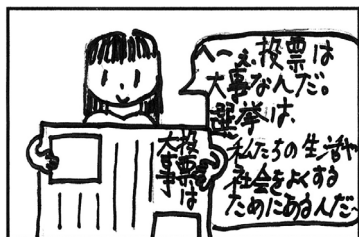 へーぇ、投票は
大事なんだ。
選挙は、
私たちの生活や
社会をよくする
ためにあるんだ~
投票は
大事